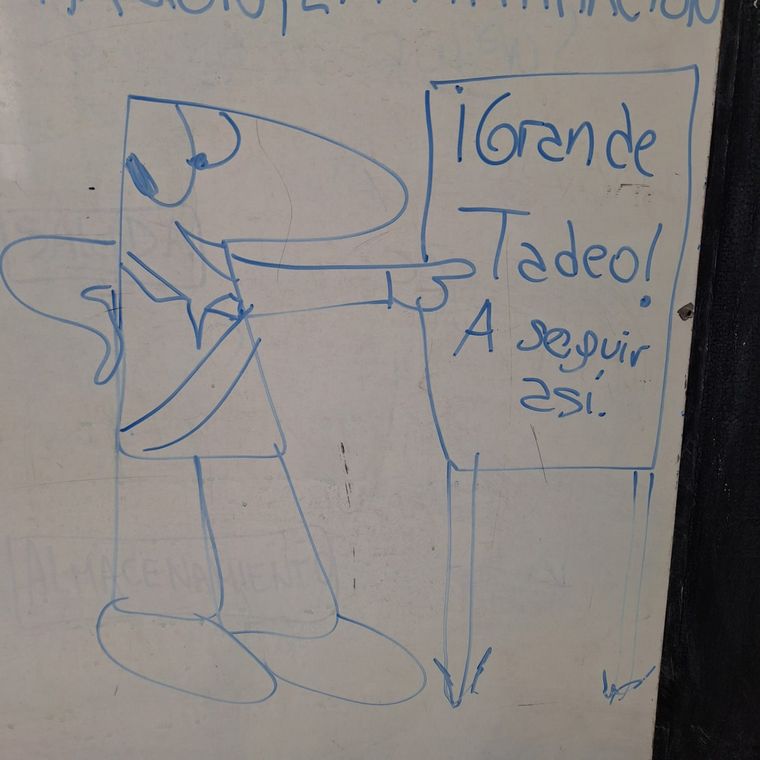 ¡Grande
Tadeo!
A seguir
así.
ALMACENAMIENTO